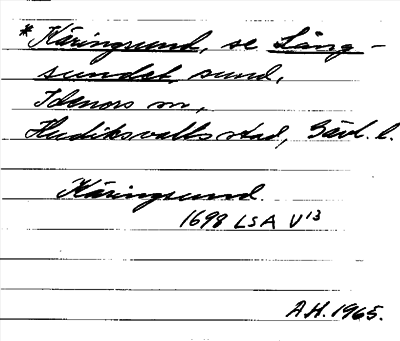 *Käringsund, se Lång-
sundet, sund,
Idenors sn,
Hudiksvalls stad, Gävl. l.
Käringsund.
1698 LSA V¹³
A.H. 1965.